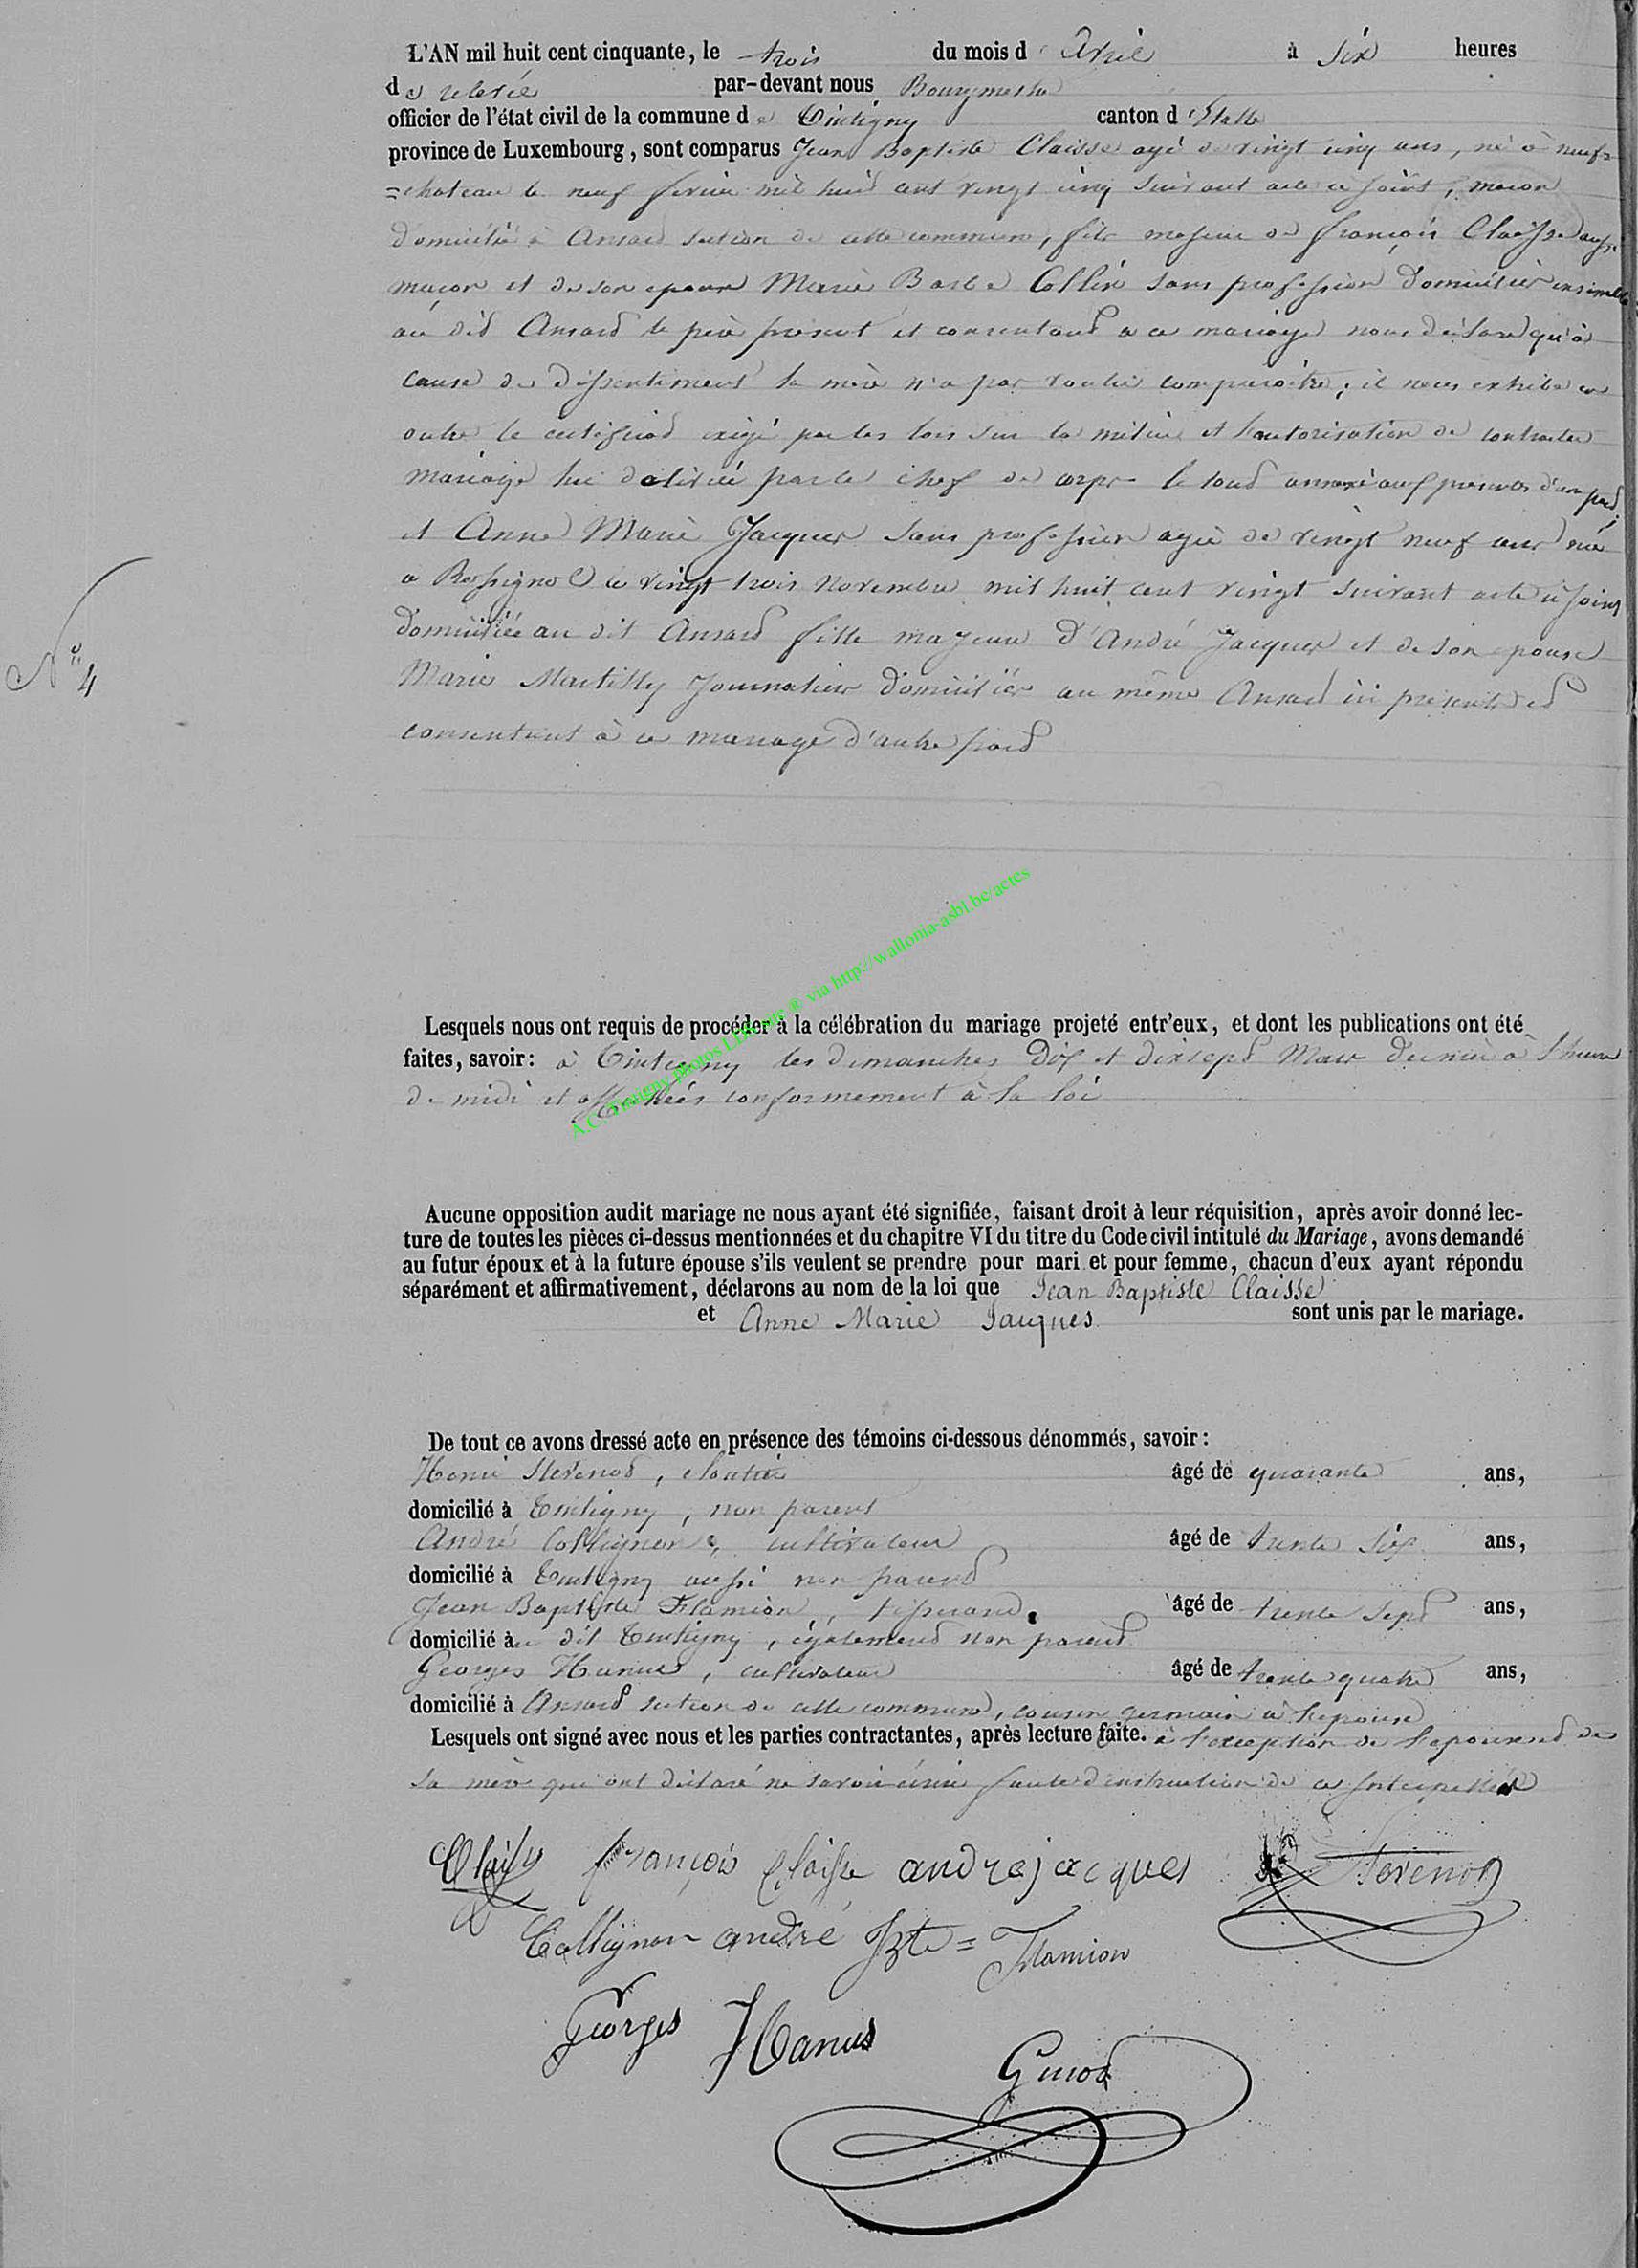 L'AN mil huit cent cinquante, le trois du mois d'Avril à six heures
de relevée par-devant nous Bourgmestre
officier de l'état civil de la commune de Tintigny canton d'Etalle
province de Luxembourg, sont comparus Jean Baptiste Claisse agé de vingt cinq ans, né à neuf=
=chateau le neuf fevrier mil huit cent vingt cinq suivant acte ci joint, macon
domicilié à Ansard section de cette commune, fils majeur de françois Claisse aussi
maçon et de son epouse Marie Barbe Collin sans profession domiciliés ensemble
au dit Ansard le père présent et consentant a ce mariage nous déclare qu'à
cause de dissentiment la mère n'a pas voulu comparoitre; il nous exhibe en
outre le certificat exigé par les lois sur la milice et l'autorisation de contracter
mariage lui délivrée par le chef de corps le tout annexé aux presentes d'une part;
et Anne Marie Jacques sans profession agée de vingt neuf ans née
a Rossignol le vingt trois Novembre mil huit cent vingt suivant acte ci joint
domiciliée au dit Ansard fille majeure d'André Jacques et de son epouse
Marie Martilly Journaliers domiciliés au même Ansard ici présents et
consentant à ce mariage d'autre part
N° 4
Lesquels nous ont requis de procéder à la célébration du mariage projeté entr'eux, et dont les publications ont été
faites, savoir: à Tintigny les dimanches dix et dixsept Mars dernier à l'heure
de midi et affichées conformement à la loi
A.C. Tintigny photos LDS site ® via http://wallonia-asbl.be/actes
Aucune opposition audit mariage ne nous ayant été signifiée, faisant droit à leur réquisition, après avoir donné lec-
ture de toutes les pièces ci-dessus mentionnées et du chapitre VI du titre du Code civil intitulé du Mariage, avons demandé
au futur époux et à la future épouse s'ils veulent se prendre pour mari et pour femme, chacun d'eux ayant répondu
séparément et affirmativement, déclarons au nom de la loi que Jean Baptiste Claisse
et Anne Marie Jacques sont unis par le mariage.
De tout ce avons dressé acte en présence des témoins ci-dessous dénommés, savoir:
Henri Stevenod, cloutier âgé de quarante ans,
domicilié à Tintigny, non parent
André Collignon, cultivateur âgé de trente six ans,
domicilié à Tintigny aussi non parent
Jean Baptiste Flamion, tisserand âgé de trente sept ans,
domicilié au dit Tintigny, également non parent
Georges Hanus, cultivateur âgé de trente quatre ans,
domicilié à Ansard section de cette commune, cousin germain à l'epouse
Lesquels ont signé avec nous et les parties contractantes, après lecture faite. à l'exception de l'epouse et de
sa mère qui ont déclaré ne savoir écrire faute d'instruction de ce interpellées
Claisse françois Claisse andre jacques Stevenod
Collignon andré JBte = Flamion
Georges Hanus
Guiot